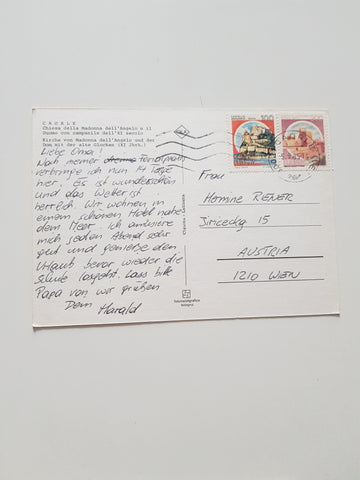 CAORLE
Chiesa della Madonna dell'Angelo e il
Duomo con campanile dell'XI secolo
Kirche von Madonna dell'Angelo und der
Dom mit der alte Glocken (XI Jhrt.)
Liebe Oma!
Nach meiner Ferienpraxis
verbringe ich nun 14 Tage
hier. Es ist wunderschön
und das Wetter ist
herrlich. Wir wohnen in
einem schönen Hotel nahe
dem Meer. Ich amüsiere
mich jeden Abend sehr
gut und genieße den
Urlaub bevor wieder die
Schule losgeht. Lass bitte
Papa von mir grüßen
Dein Harald
Frau
REINER
15
AUSTRIA
1210 WIEN
fotometalgrafica
bologna